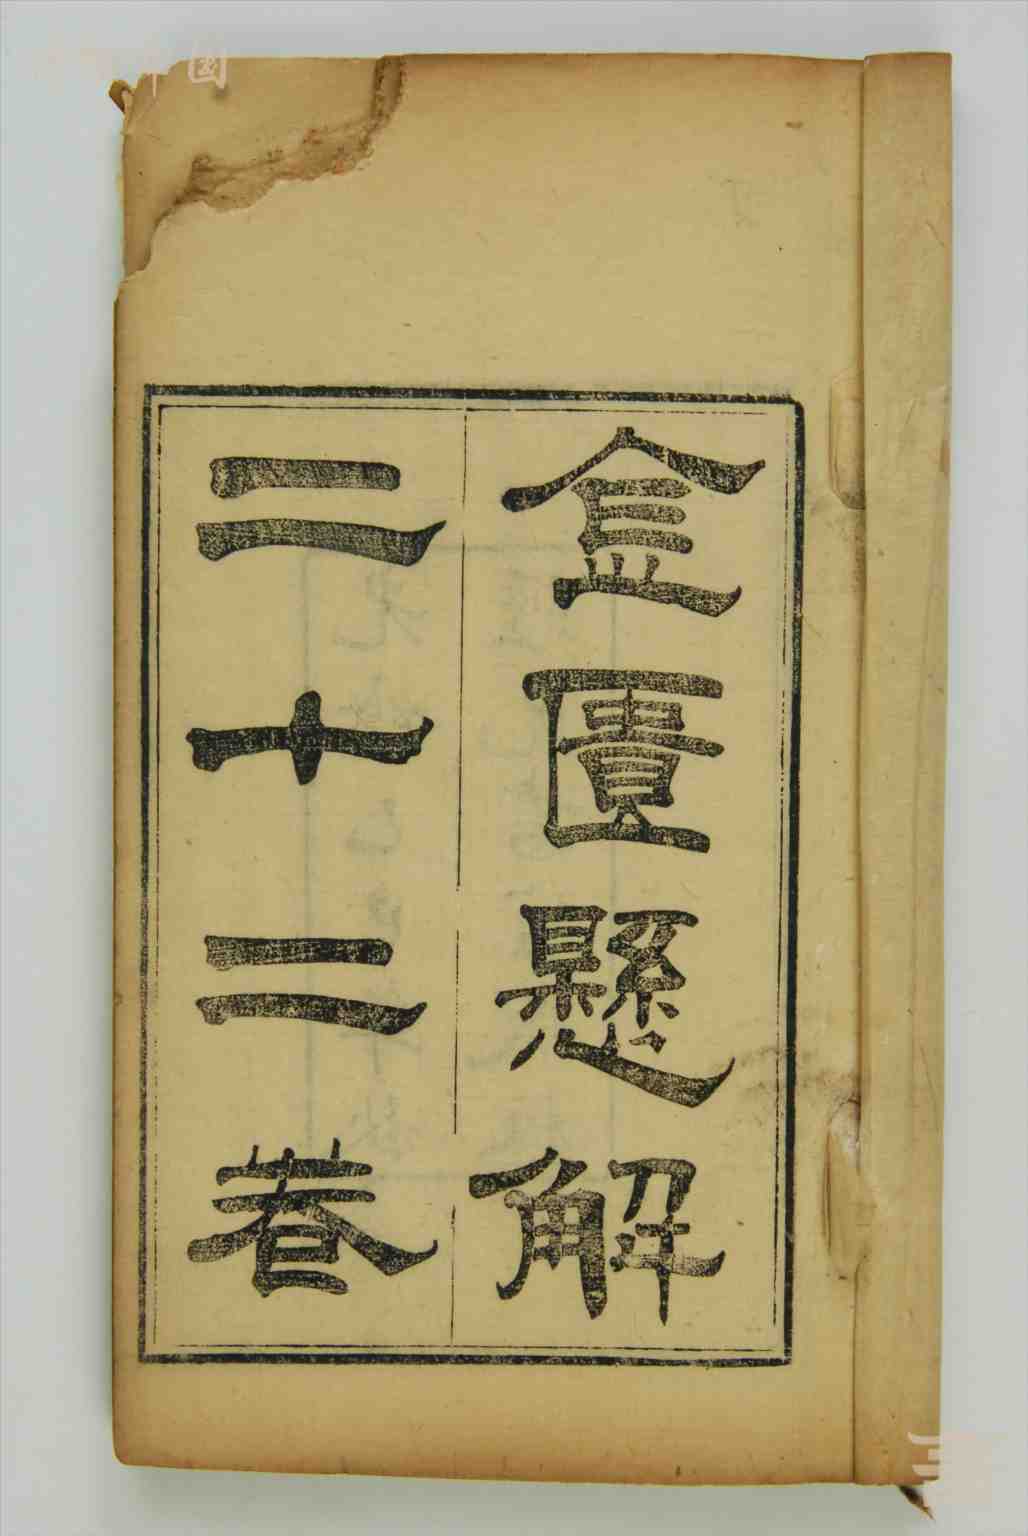 金匱懸解
二十二卷